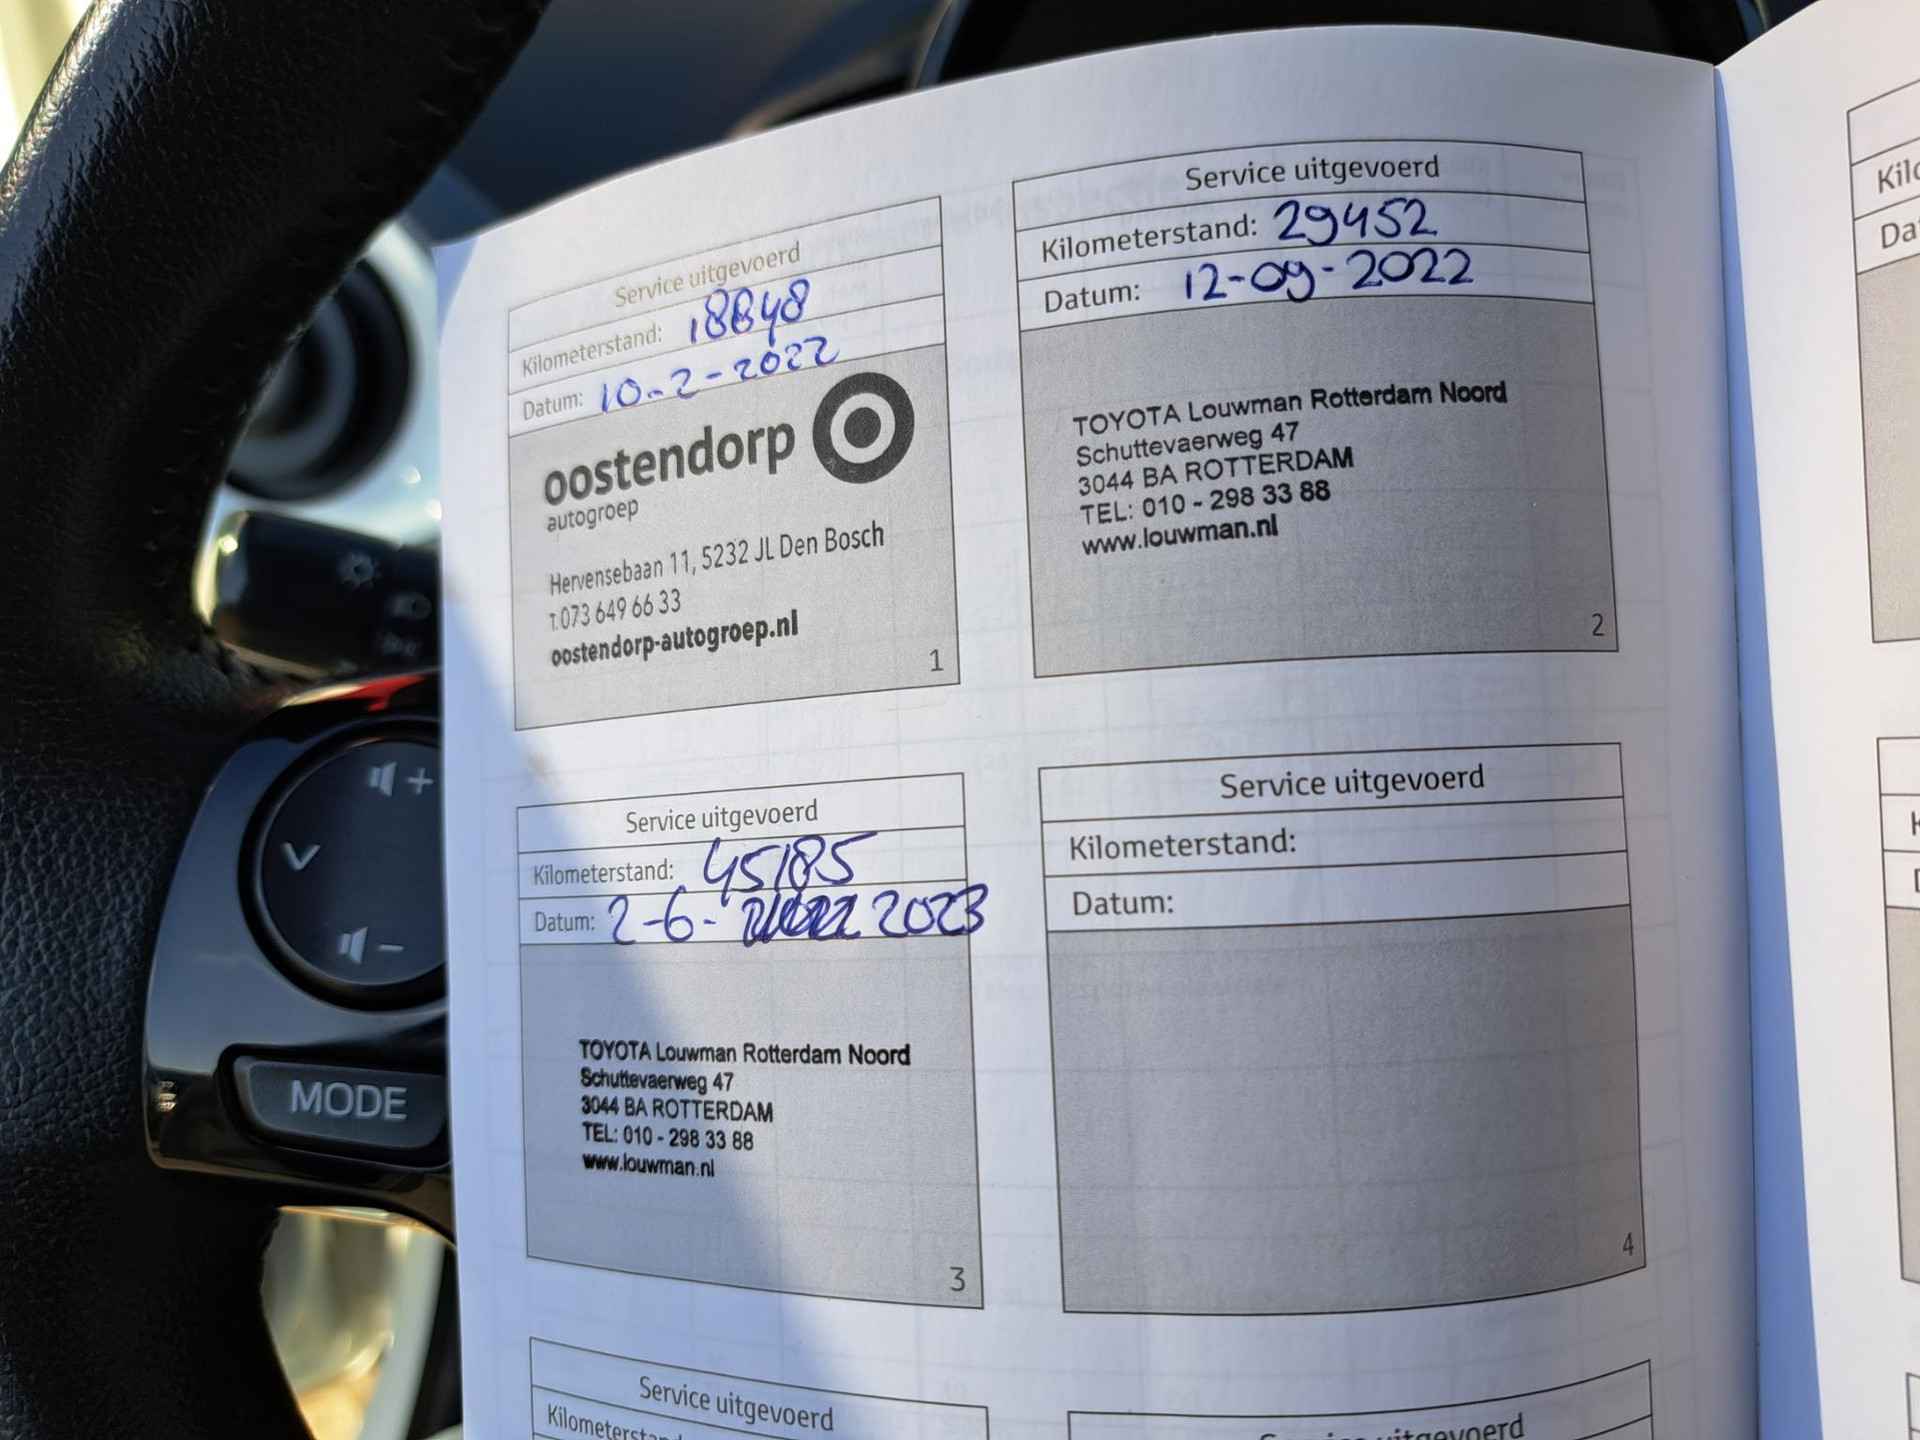 Service uitgevoerd
Kilometerstand: 18848
Datum: 10-2-2022
oostendorp
autogroep
Hervensebaan 11, 5232 JL Den Bosch
T. 073 649 66 33
oostendorp-autogroep.nl
1
Service uitgevoerd
Kilometerstand: 29452
Datum: 12-09-2022
TOYOTA Louwman Rotterdam Noord
Schuttevaerweg 47
3044 BA ROTTERDAM
TEL: 010 - 298 33 88
www.louwman.nl
2
Service uitgevoerd
Kilometerstand: 45185
Datum: 2-6- 2023
TOYOTA Louwman Rotterdam Noord
Schuttevaerweg 47
3044 BA ROTTERDAM
TEL: 010 - 298 33 88
www.louwman.nl
3
Service uitgevoerd
Kilometerstand:
Datum:
4
Service uitgevoerd
Service uitgevoerd
+
-
MODE